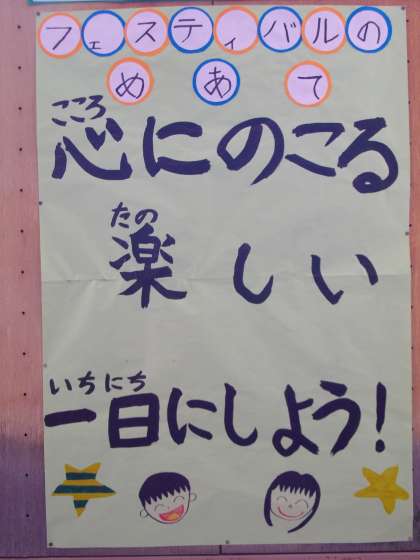 フェスティバルの
めあて
こころ
心にのこる
たの
楽しい
いちにち
一日にしよう!